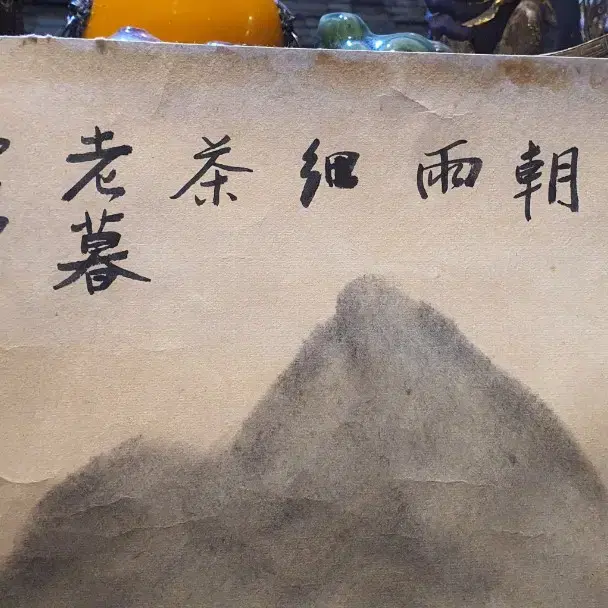 朝
雨
細
茶
老暮